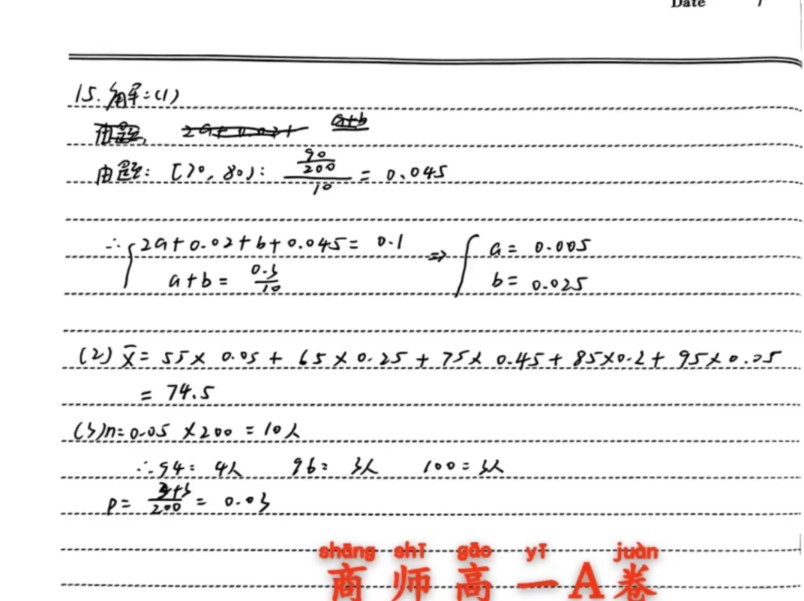 Date
15. 解:(1)
由题, 2a+0.02+ a+b
由题: [70, 80): 90/200/10 = 0.045
∴ { 2a+0.02+b+0.045= 0.1 ⇒ { a= 0.005
a+b= 0.3/10 b= 0.025
(2) x̄= 55× 0.05 + 65×0.25 + 75× 0.45 + 85×0.2 + 95×0.05
= 74.5
(3) n=0.05 ×200 = 10人
∴94: 4人 96: 3人 100=3人
P= 3+3/200 = 0.03
shāng shī gāo yī juàn
商师高一A卷